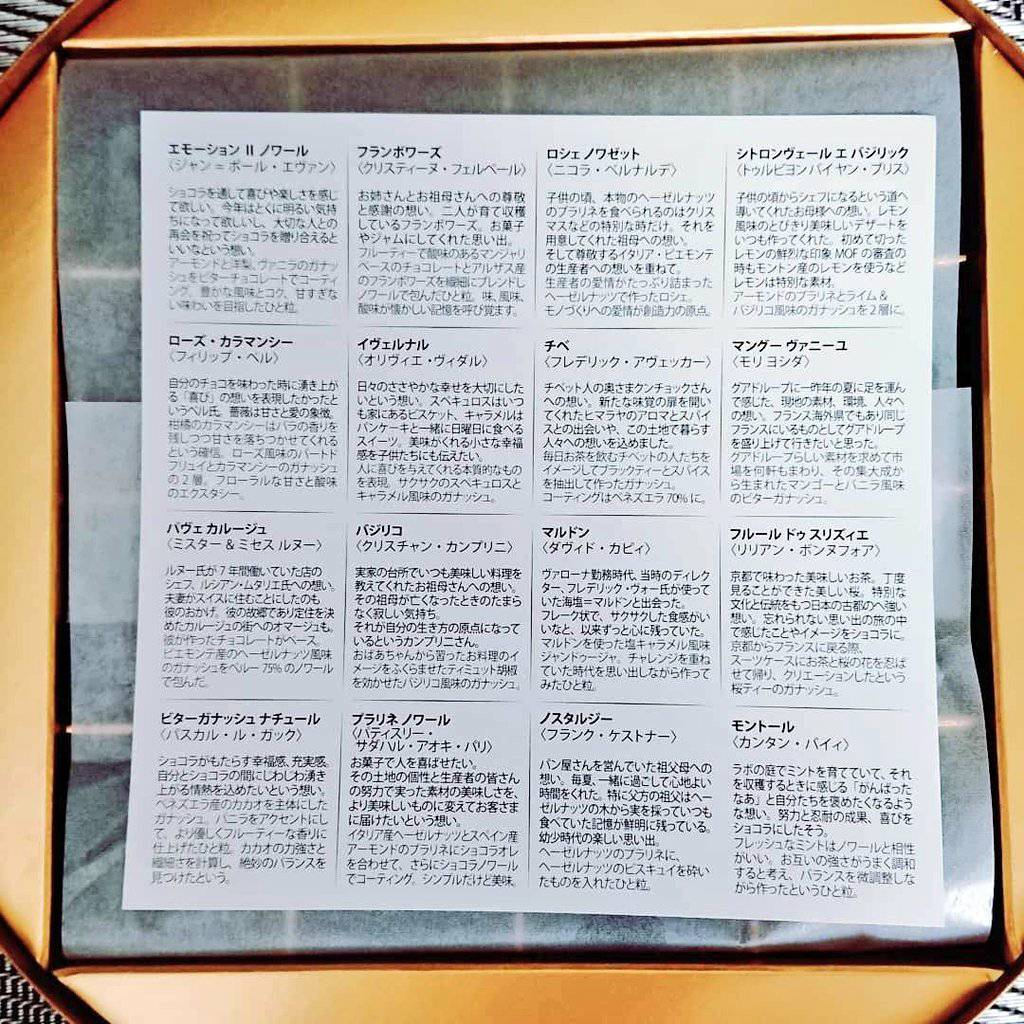 エモーション II ノワール
〈ジャン＝ポール・エヴァン〉
ショコラを通して喜びや楽しさを感じ
て欲しい。今年はとくに明るい気持
ちになって欲しいし、大切な人との
再会を祝ってショコラを贈り合えると
いいなという想い。
アーモンドと洋梨、ヴァニラのガナッ
シュをビターチョコレートでコーティ
ング。豊かな風味とコク、甘すぎな
い味わいを目指したひと粒。
フランボワーズ
〈クリスティーヌ・フェルベール〉
お姉さんとお祖母さんへの尊敬
と感謝の想い。二人が育て収穫
しているフランボワーズ。お菓子
やジャムにしてくれた思い出。
フルーティーで酸味のあるマンジャリ
ベースのチョコレートとアルザス産
のフランボワーズを繊細にブレンドし
ノワールで包んだひと粒。味、風味、
酸味が懐かしい記憶を呼び覚ます。
ロシェ ノワゼット
〈ニコラ・ベルナルデ〉
子供の頃、本物のヘーゼルナッツ
のプラリネを食べられるのはクリス
マスなどの特別な時だけ。それを
用意してくれた祖母への想い。
そして尊敬するイタリア・ピエモンテ
の生産者への想いを重ねて。
生産者の愛情がたっぷり詰まった
ヘーゼルナッツで作ったロシェ。
モノづくりへの愛情が創造力の原点。
シトロンヴェール エ バジリック
〈トゥルビヨン バイ ヤン・ブリス〉
子供の頃からシェフになるという道へ
導いてくれたお母様への想い。レモン
風味のとびきり美味しいデザートを
いつも作ってくれた。初めて切った
レモンの鮮烈な印象 MOF の審査の
時もモントン産のレモンを使うなど
レモンは特別な素材。
アーモンドのプラリネとライム &
バジリコ風味のガナッシュを2層に。
ローズ・カラマンシー
〈フィリップ・ベル〉
自分のチョコを味わった時に湧き上が
る「喜び」の想いを表現したかったと
いうベル氏。薔薇は甘さと愛の象徴。
柑橘のカラマンシーはバラの香りを
残しつつ甘さを落ちつかせてくれる
という確信。ローズ風味のパートド
フリュイとカラマンシーのガナッシュ
の2層。フローラルな甘さと酸味
のエクスタシー。
イヴェルナル
〈オリヴィエ・ヴィダル〉
日々のささやかな幸せを大切にした
いという想い。スペキュロスはいつ
も家にあるビスケット、キャラメルは
パンケーキと一緒に日曜日に食べる
スイーツ。美味がくれる小さな幸福
感を子供たちにも伝えたい。
人に喜びを与えてくれる本質的なもの
を表現。サクサクのスペキュロスと
キャラメル風味のガナッシュ。
チベ
〈フレデリック・アヴェッカー〉
チベット人の奥さまクンチョックさん
への想い。新たな味覚の扉を開い
てくれたヒマラヤのアロマとスパイ
スとの出会いや、この土地で暮らす
人々への想いを込めました。
毎日お茶を飲むチベットの人たちを
イメージしてブラックティーとスパイス
を抽出して作ったガナッシュ。
コーティングはベネズエラ 70% に。
マングー ヴァニーユ
〈モリ ヨシダ〉
グアドループに一昨年の夏に足を運ん
で感じた、現地の素材、環境、人々へ
の想い。フランス海外県でもあり同じ
フランスにいるものとしてグアドループ
を盛り上げて行きたいと思った。
グアドループらしい素材を求めて市
場を何軒もまわり、その集大成か
ら生まれたマンゴーとバニラ風味
のビターガナッシュ。
パヴェ カルージュ
〈ミスター & ミセス ルヌー〉
ルヌー氏が7年間働いていた店の
シェフ、ルシアン・ムタリエ氏への想い。
夫妻がスイスに住むことにしたのも
彼のおかげ。彼の故郷であり定住を決
めたカルージュの街へのオマージュも。
彼が作ったチョコレートがベース。
ピエモンテ産のヘーゼルナッツ風味
のガナッシュをペルー 75% のノワール
で包んだ。
バジリコ
〈クリスチャン・カンプリニ〉
実家の台所でいつも美味しい料理を
教えてくれたお祖母さんへの想い。
その祖母が亡くなったときのたまら
なく寂しい気持ち。
それが自分の生き方の原点になって
いるというカンプリニさん。
おばあちゃんから習ったお料理のイ
メージをふくらませたティミュット胡椒
を効かせたバジリコ風味のガナッシュ。
マルドン
〈ダヴィド・カピィ〉
ヴァローナ勤務時代、当時のディレク
ター、フレデリック・ヴォー氏が使って
いた海塩＝マルドンと出会った。
フレーク状で、サクサクした食感がい
いなと、以来ずっと心に残っていた。
マルドンを使った塩キャラメル風味
ジャンドゥージャ。チャレンジを重ね
ていた時代を思い出しながら作って
みたひと粒。
フルール ドゥ スリズィエ
〈リリアン・ボンヌフォア〉
京都で味わった美味しいお茶。丁度
見ることができた美しい桜。特別な
文化と伝統をもつ日本の古都のへ強い
想い。忘れられない思い出の旅の中
で感じたことやイメージをショコラに。
京都からフランスに戻る際、
スーツケースにお茶と桜の花を忍ば
せて帰り、クリエーションしたという
桜ティーのガナッシュ。
ビターガナッシュ ナチュール
〈パスカル・ル・ガック〉
ショコラがもたらす幸福感、充実感。
自分とショコラの間にじわじわ湧き
上がる情熱を込めたいという想い。
ベネズエラ産のカカオを主体にした
ガナッシュ。バニラをアクセントにし
て、より優しくフルーティーな香りに
仕上げたひと粒。カカオの力強さと
繊細さを計算し、絶妙のバランスを
見つけたという。
プラリネ ノワール
〈パティスリー・
サダハル・アオキ・パリ〉
お菓子で人を喜ばせたい。
その土地の個性と生産者の皆さん
の努力で実った素材の美味しさを、
より美味しいものに変えてお客さま
に届けたいという想い。
イタリア産ヘーゼルナッツとスペイン産
アーモンドのプラリネにショコラオレ
を合わせて、さらにショコラノワール
でコーティング。シンプルだけど美味。
ノスタルジー
〈フランク・ケストナー〉
パン屋さんを営んでいた祖父母への
想い。毎夏、一緒に過ごして心地よい
時間をくれた。特に父方の祖父はヘー
ゼルナッツの木から実を採っていつも
食べていた記憶が鮮明に残っている。
幼少時代の楽しい思い出。
ヘーゼルナッツのプラリネに、
ヘーゼルナッツのビスキュイを砕い
たものを入れたひと粒。
モントール
〈カンタン・バイィ〉
ラボの庭でミントを育てていて、それ
を収穫するときに感じる「がんばった
なあ」と自分たちを褒めたくなるよう
な想い。努力と忍耐の成果、喜びを
ショコラにしたそう。
フレッシュなミントはノワールと相性
がいい。お互いの強さがうまく調和
すると考え、バランスを微調整しな
がら作ったというひと粒。